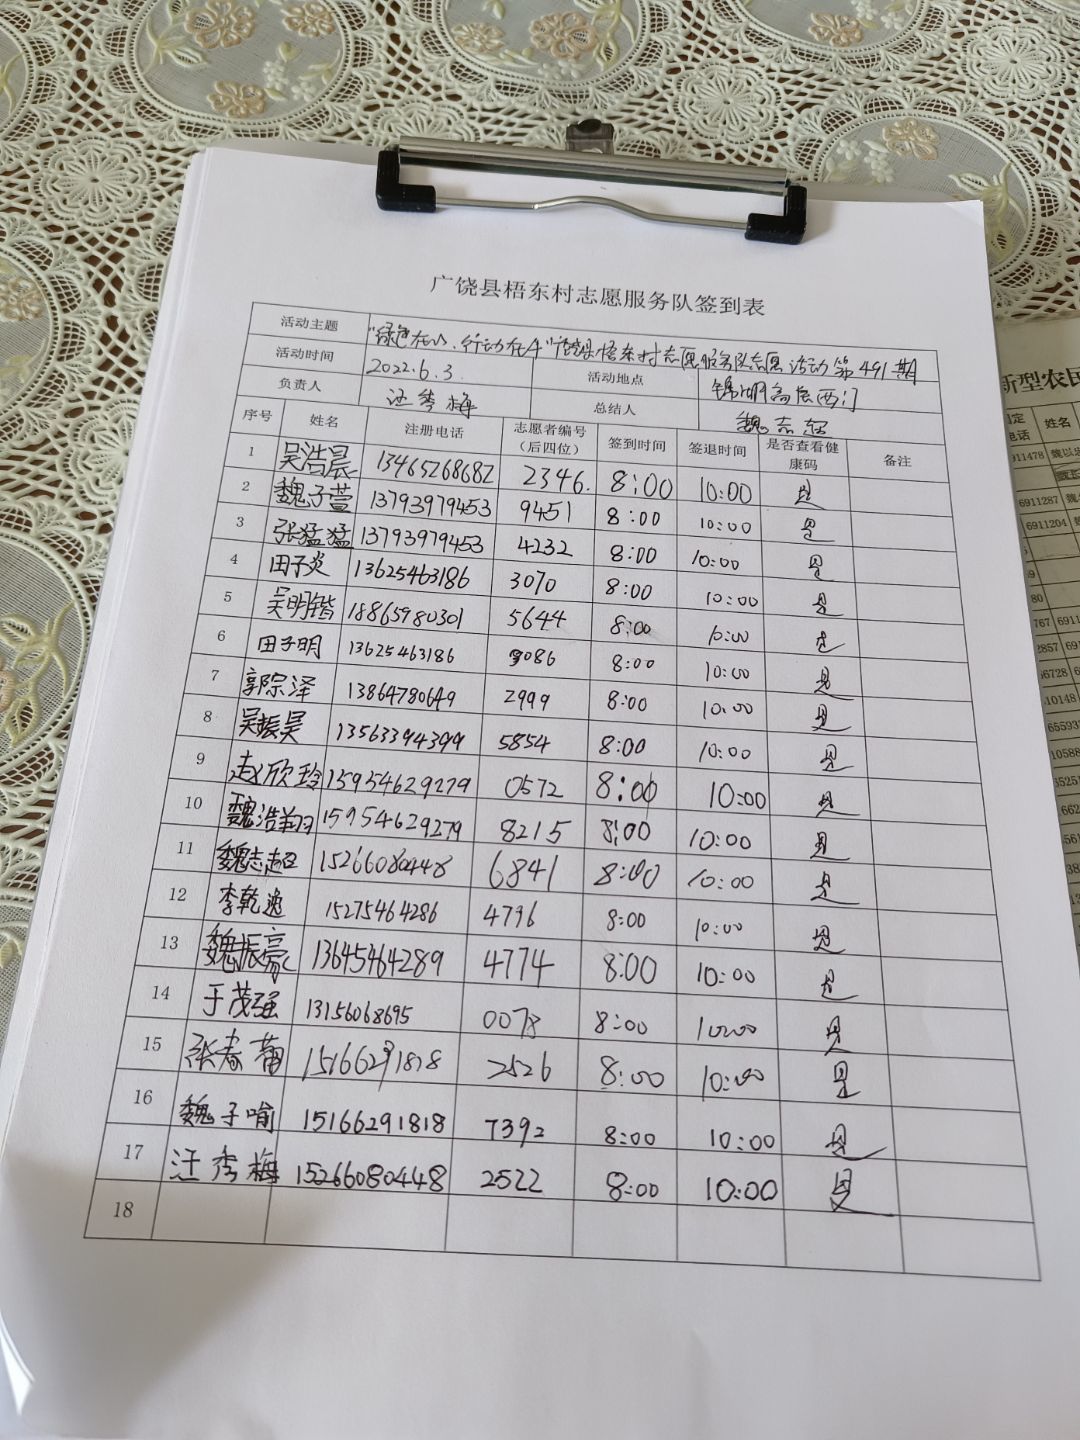 广饶县梧东村志愿服务队签到表
活动主题 “绿色在心、行动在手”广饶县梧东村志愿服务队志愿活动第491期
活动时间 2022.6.3. 活动地点 锦湖高层西门
负责人 汪秀梅 总结人 魏志超
序号 姓名 注册电话 志愿者编号（后四位） 签到时间 签退时间 是否查看健康码 备注
1 吴浩晨 13465268682 2346. 8:00 10:00 是
2 魏子萱 13793979453 9451 8:00 10:00 是
3 张猛猛 13793979453 4232 8:00 10:00 是
4 田子炎 13625463186 3070 8:00 10:00 是
5 吴明锴 18865980301 5644 8:00 10:00 是
6 田子明 13625463186 9086 8:00 10:00 是
7 郭宗泽 13864780649 2999 8:00 10:00 是
8 吴振昊 13563394399 5854 8:00 10:00 是
9 赵欣玲 15954629279 0572 8:00 10:00 是
10 魏浩翔 15954629279 8215 8:00 10:00 是
11 魏志超 15266080448 6841 8:00 10:00 是
12 李乾逸 15275464286 4796 8:00 10:00 是
13 魏振豪 13645464289 4774 8:00 10:00 是
14 于茂强 13156068695 0078 8:00 10:00 是
15 张春莆 15166291818 2526 8:00 10:00 是
16 魏子喻 15166291818 7392 8:00 10:00 是
17 汪秀梅 15266080448 2522 8:00 10:00 是
18
新型农民
电话 姓名
911478 魏以忠
6911287
6911204